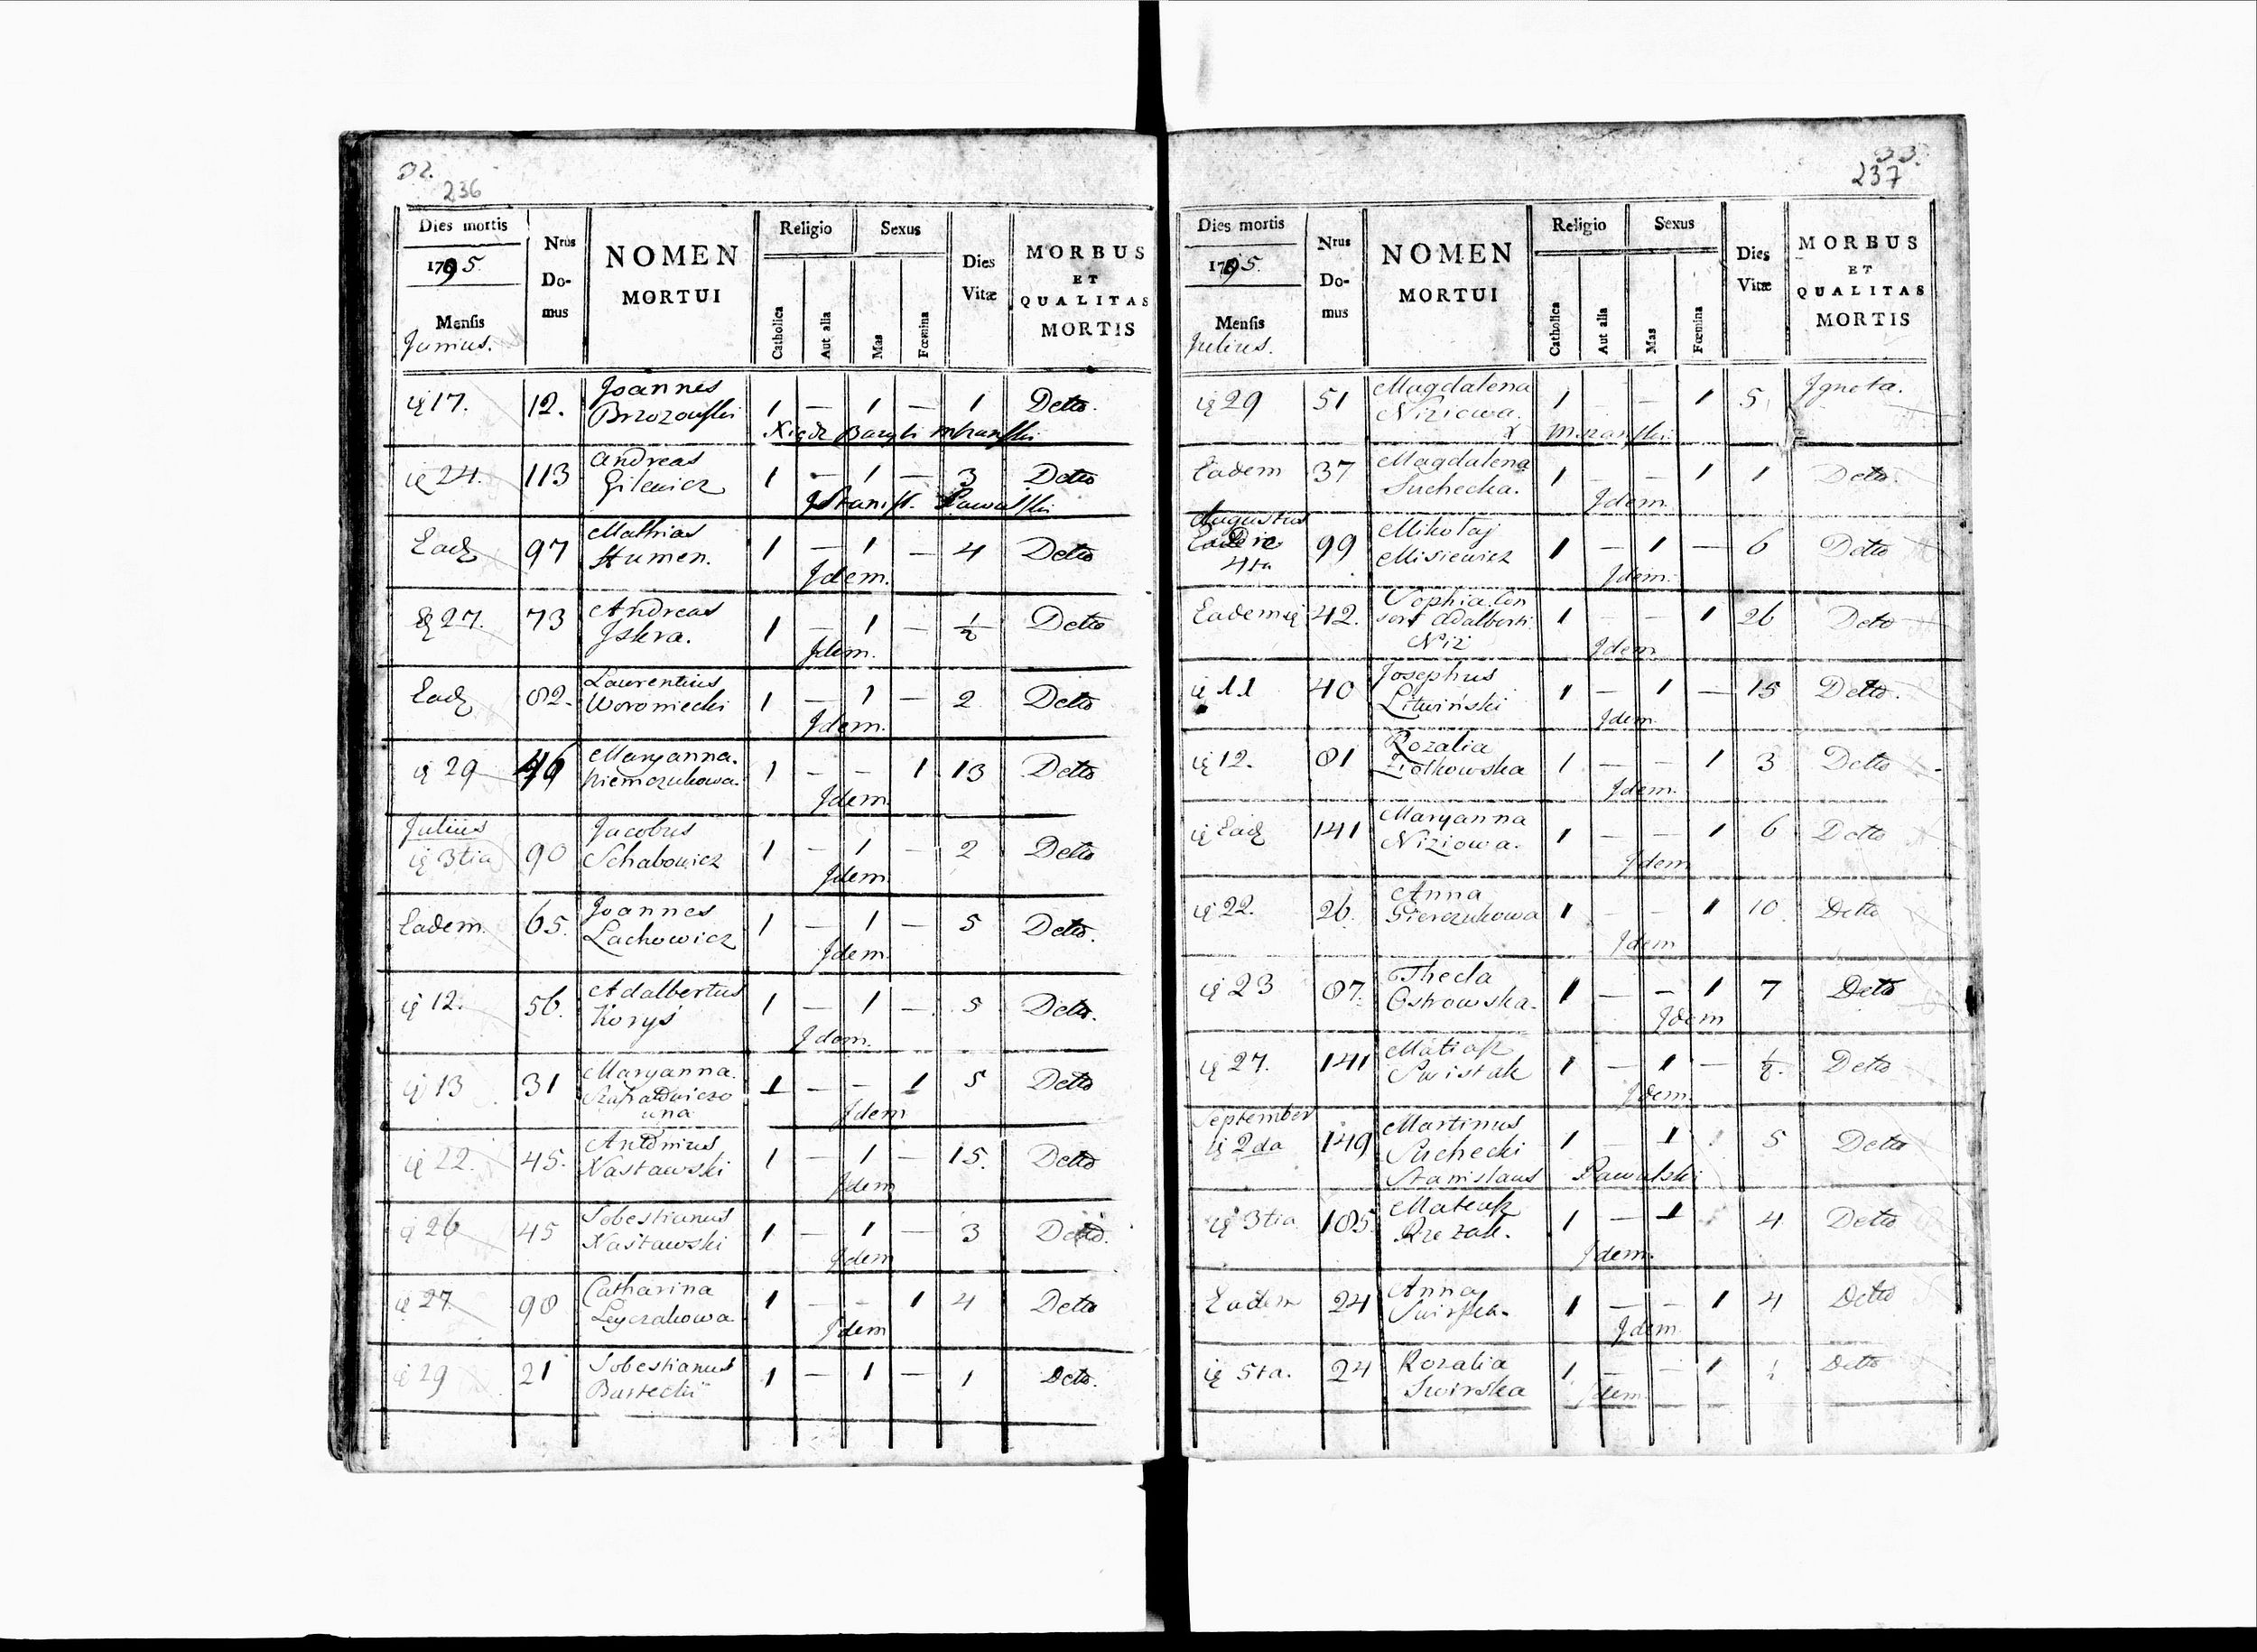 32.
236
Dies mortis
1795.
Mensis
Junius.
Nrus Do- mus
NOMEN MORTUI
Religio
Catholica
Aut alia
Sexus
Mas
Fœmina
Dies Vitæ
MORBUS ET QUALITAS MORTIS
17. 12. Joannes 1 — 1 — 1 Detto.
Brzozowski
24. 113 Andreas 1 — 1 — 3 Detto
Gilewicz
Stanisł. Pawulski
97 Mathias 1 — 1 — 4 Detto
Humen.
Jdem.
27. 73 Andreas 1 — 1 — 1/2 Detto
Jskra.
Jdem.
82. Laurentius 1 — 1 — 2 Detto
Woroniecki
Jdem.
29 46 Maryanna. 1 — — 1 13 Detto
Niemczukowa.
Jdem
Julius
3tia 90 Jacobus 1 — 1 — 2 Detto
Schabowicz
Jdem
Eadem. 65. Joannes 1 — 1 — 5 Detto.
Lachowicz
Jdem
12. 56. Adalbertus 1 — 1 — 5 Detto.
Koryś
Jdem.
13 31 Maryanna. 1 — — 1 5 Detto
Jdem
22. 45. Antonius 1 — 1 — 15. Detto
Nastawski
Jdem
26 45 Sobestianus 1 — 1 — 3 Detto.
Nastawski
Jdem
27. 98 Catharina 1 — — 1 4 Detto
Leyczakowa
Jdem
29 21 Sobestianus 1 — 1 — 1 Detto.
Bartecki
33.
237
Dies mortis
1795.
Mensis
Julius.
Nrus Do- mus
NOMEN MORTUI
Religio
Catholica
Aut alia
Sexus
Mas
Fœmina
Dies Vitæ
MORBUS ET QUALITAS MORTIS
29 51 Magdalena 1 — — 1 5 Jgnota.
Niziowa.
Eadem 37 Magdalena 1 — — 1 1 Detto.
Suchecka.
Jdem.
Augustus
Die 99 Mikołaj 1 — 1 — 6 Detto
4ta Misiewicz
Jdem.
Eadem 42. Sophia Con 1 — — 1 26 Detto
sors Adalberti
Niz
Jdem
11 40 Josephus 1 — 1 — 15 Detto.
Litwiński
Jdem.
12. 81 Rozalia 1 — — 1 3 Detto
Ziołkowska
Jdem.
141 Maryanna 1 — — 1 6 Detto
Niziowa.
Jdem
22. 26. Anna 1 — — 1 10. Detto
Gierczukowa
Jdem
23 87. Thecla 1 — — 1 7 Detto
Ostrowska.
Jdem
27. 141 Matiasz 1 — 1 — 1/2. Detto
Swistak
Jdem.
September
2da 149 Martinus 1 — 1 5 Detto
Suchecki
Stanislaus Pawulski
3tia 105. 1 — 1 4 Detto
Jdem.
Eadem 24 Anna 1 — — 1 4 Detto
Swirska.
Jdem
5ta. 24 Rozalia 1 — — 1 Detto
Swirska
Jdem